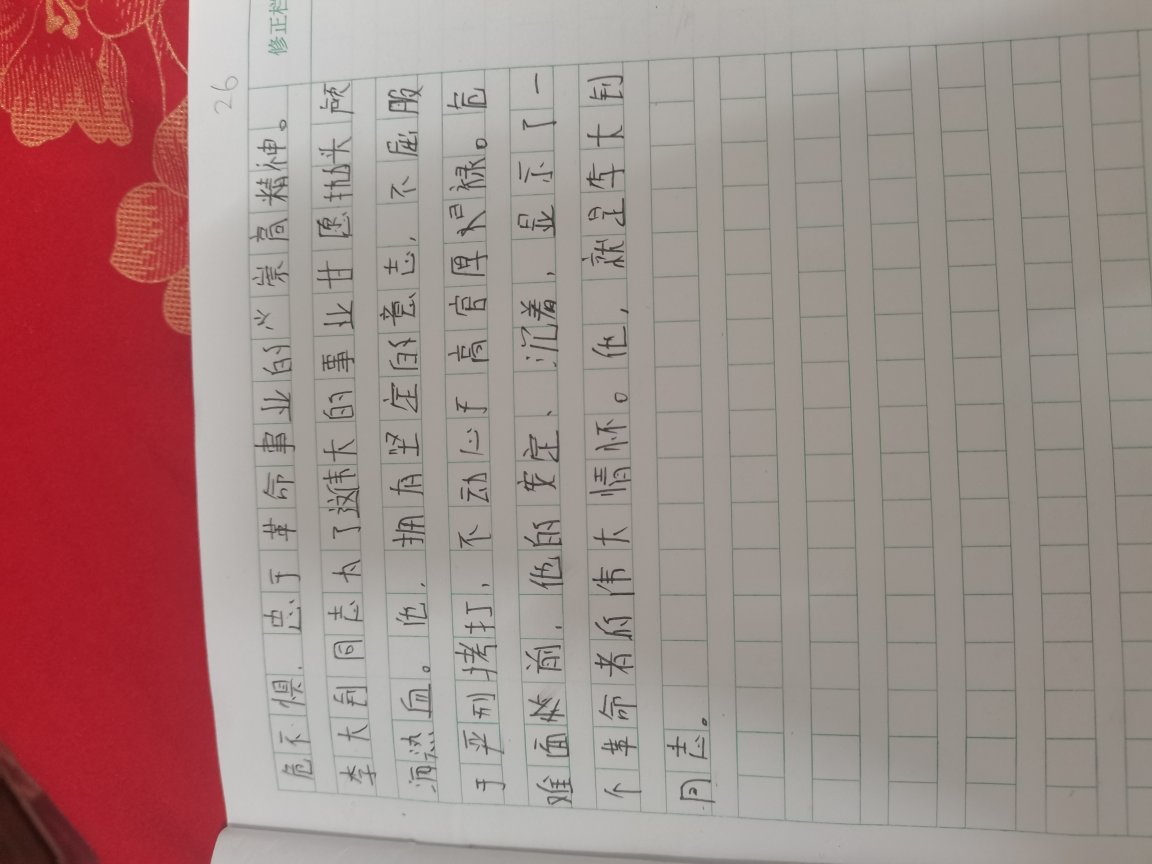 26
修正栏
危不惧,忠于革命事业的心崇高精神。
李大钊同志为了这伟大的事业甘愿抛头颅
洒热血。他,拥有坚定的意志,不屈服
于严刑拷打,不动心于高官厚禄。危
难面前,他的安定、沉着,显示了一
个革命者的伟大情怀。他,就是李大钊
同志。